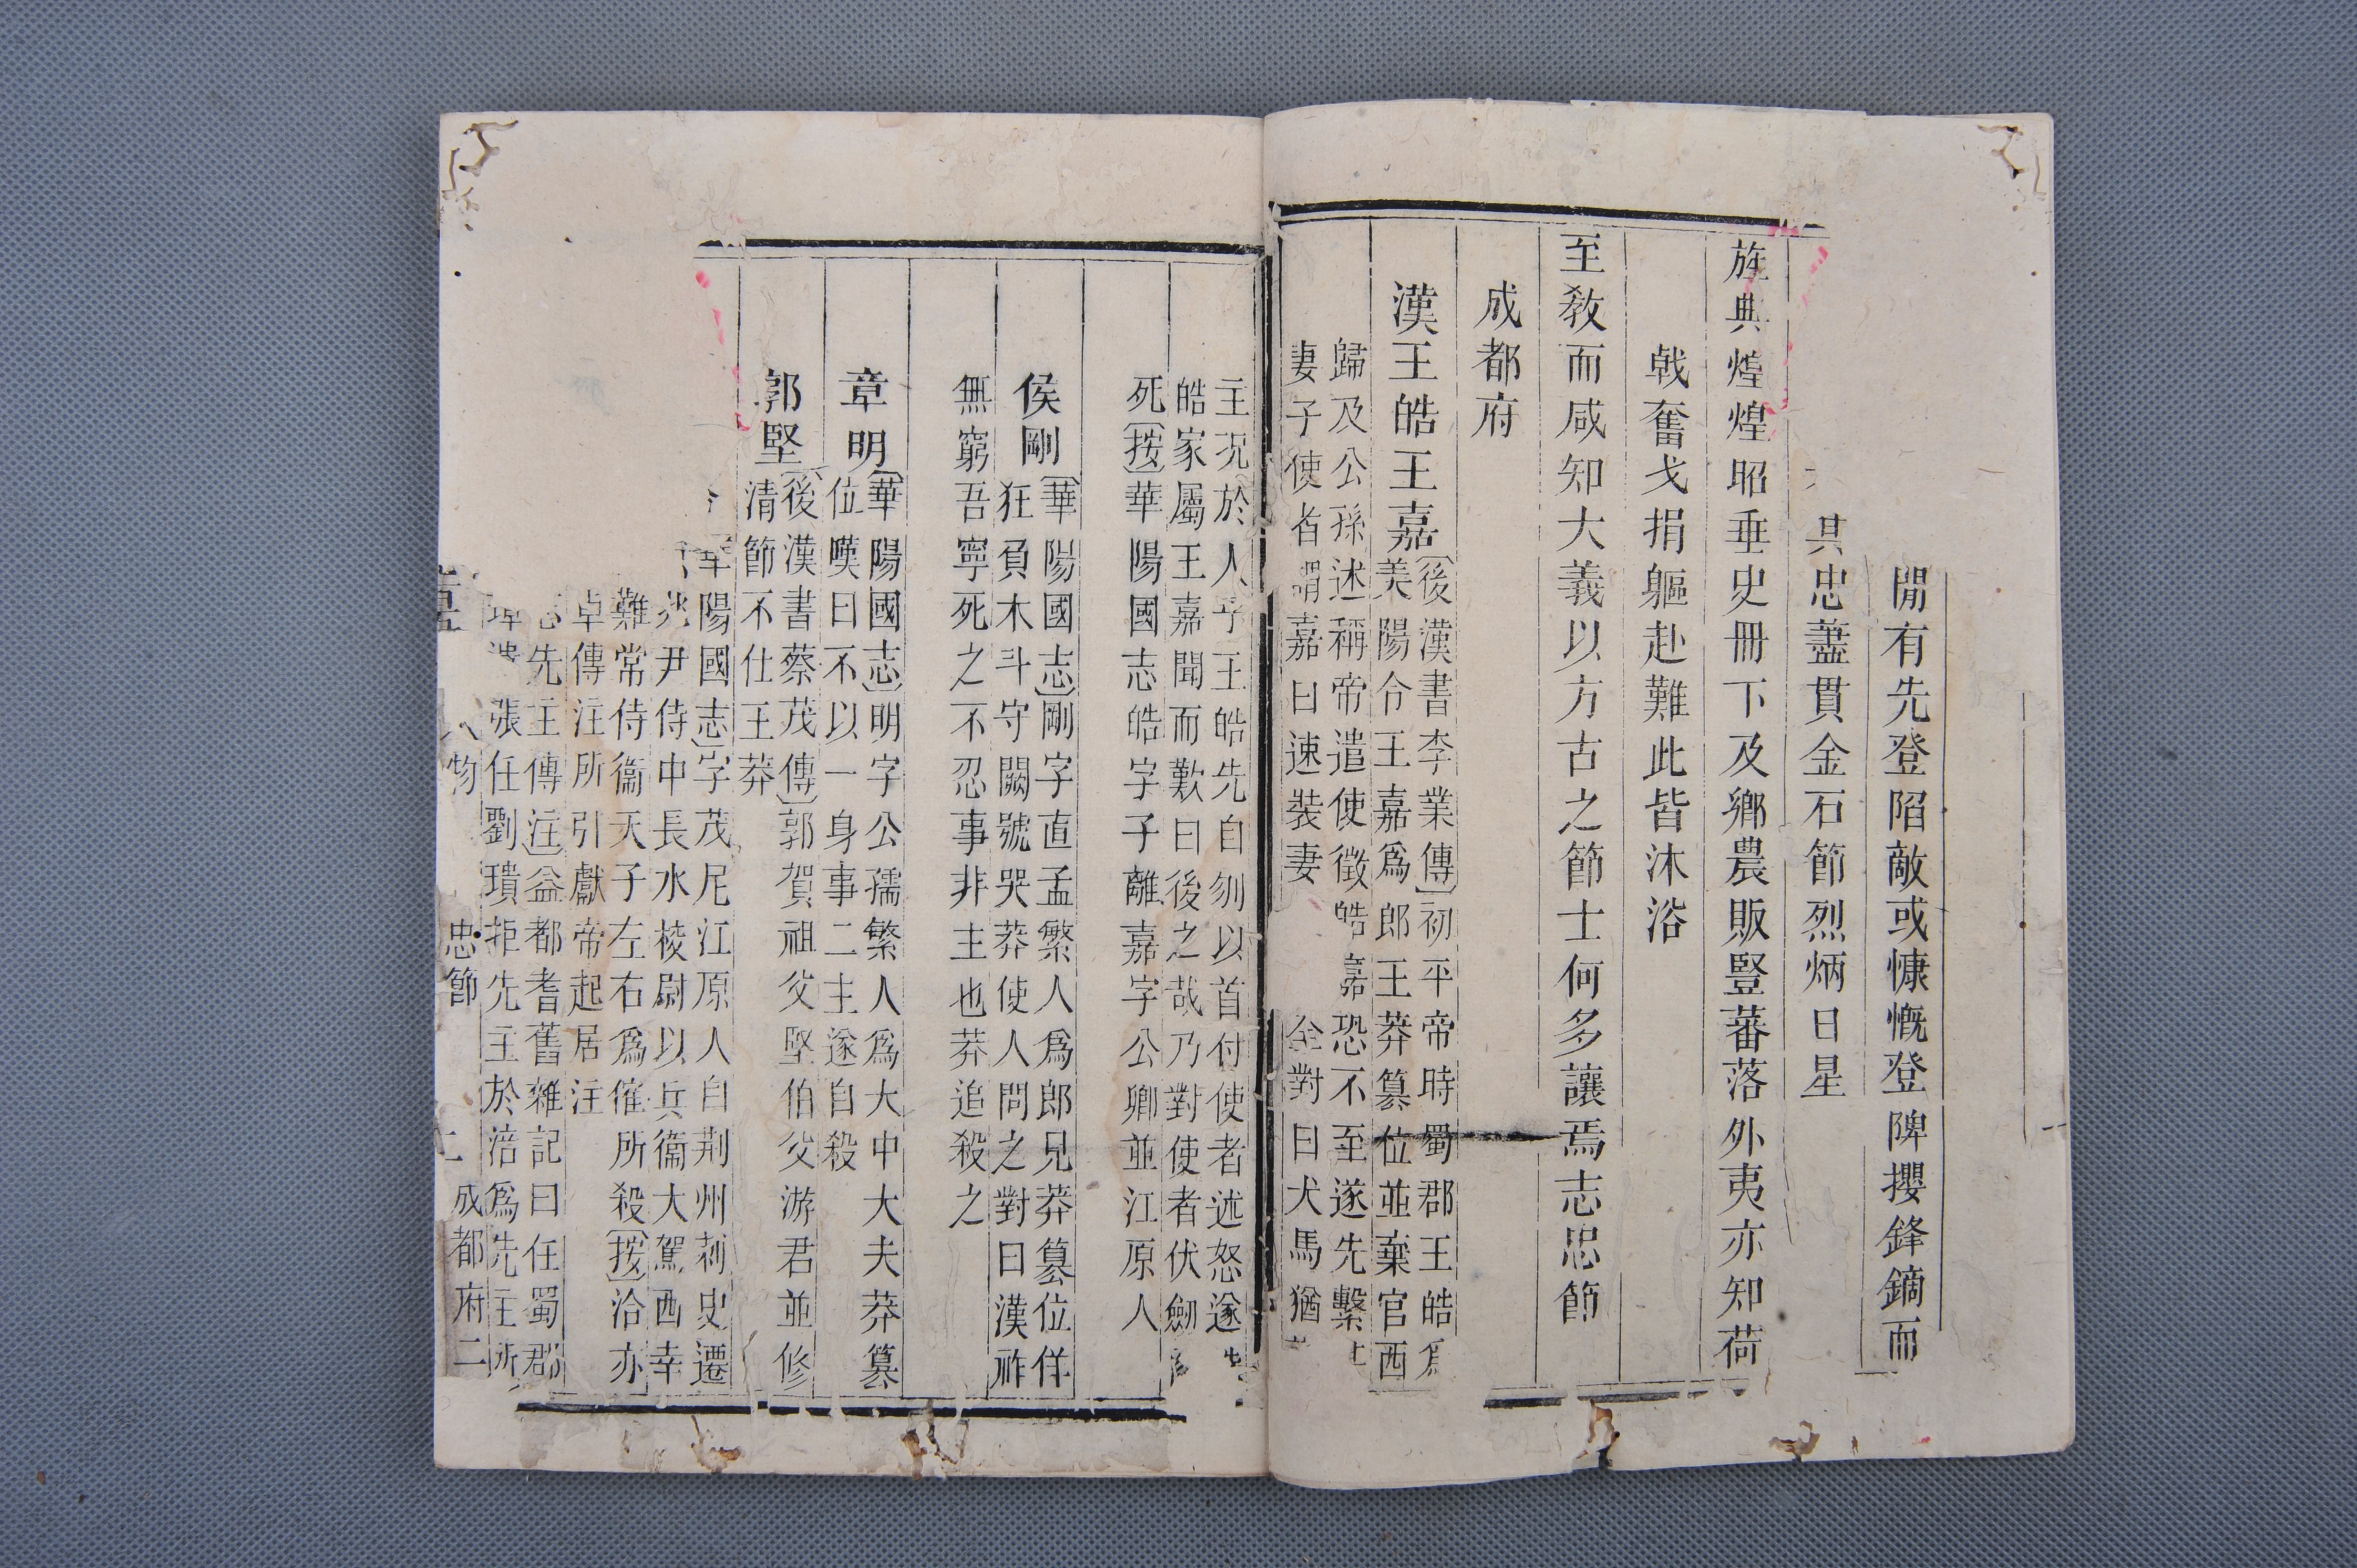 閒有先登陷敵或慷慨登陴攖鋒鏑而
其忠藎貫金石節烈炳日星
旌典煌煌昭垂史冊下及鄉農販豎蕃落外夷亦知荷
戟奮戈捐軀赴難此皆沐浴
至教而咸知大義以方古之節士何多讓焉志忠節
成都府
漢王皓王嘉
〔後漢書李業傳〕初平帝時蜀郡王皓爲
美陽令王嘉爲郎王莽篡位並棄官西
歸及公孫述稱帝遣使徵皓嘉恐不至遂先繫
妻子使者謂嘉曰速裝妻全對曰犬馬猶
主況於人乎王皓先自刎以首付使者述怒遂
皓家屬王嘉聞而歎曰後之哉乃對使者伏劒
死〔按〕華陽國志皓字子離嘉字公卿並江原人
侯剛
〔華陽國志〕剛字直孟繁人爲郎見莽篡位佯
狂負木斗守闕號哭莽使人問之對曰漢祚
無窮吾寧死之不忍事非主也莽追殺之
章明
〔華陽國志〕明字公孺繁人爲大中大夫莽篡
位嘆曰不以一身事二主遂自殺
郭堅
〔後漢書蔡茂傳〕郭賀祖父堅伯父游君並修
清節不仕王莽
華陽國志〕字茂尼江原人自荆州刺史遷
尹侍中長水校尉以兵衞大駕西幸
難常侍衞天子左右爲傕所殺〔按〕洽亦
卓傳注所引獻帝起居注
先主傳注〕益都耆舊雜記曰任蜀郡
張任劉璝拒先主於涪爲先主所
人物
忠節
成都府二